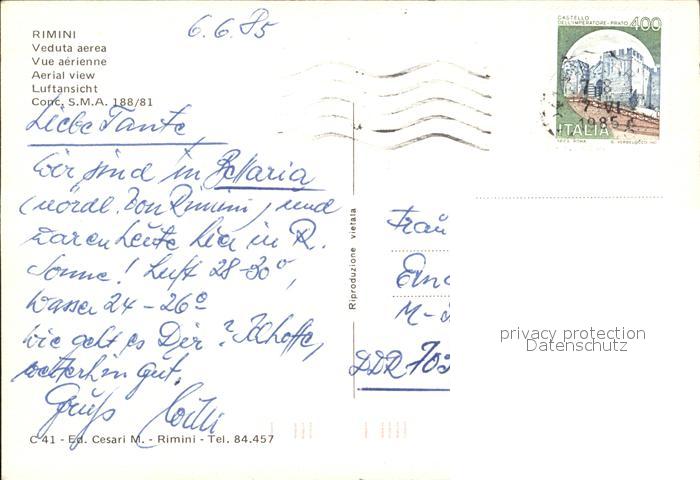 RIMINI
Veduta aerea
Vue aérienne
Aerial view
Luftansicht
Conc. S.M.A. 188/81
6.6.85
CASTELLO
DELL'IMPERATORE-PRATO 400
7 VI
1985
ITALIA
Liebe Tante,
Wir sind in Bellaria
(nördl. von Rimini) und
waren heute hier in R.
Sonne! Luft 28-30°,
Wasser 24-26°
Wie geht es Dir? Ich hoffe,
weiterhin gut.
Gruß
Riproduzione vietata
Frau
M-
DDR 705
privacy protection
Datenschutz
C 41 - Ed. Cesari M. - Rimini - Tel. 84.457